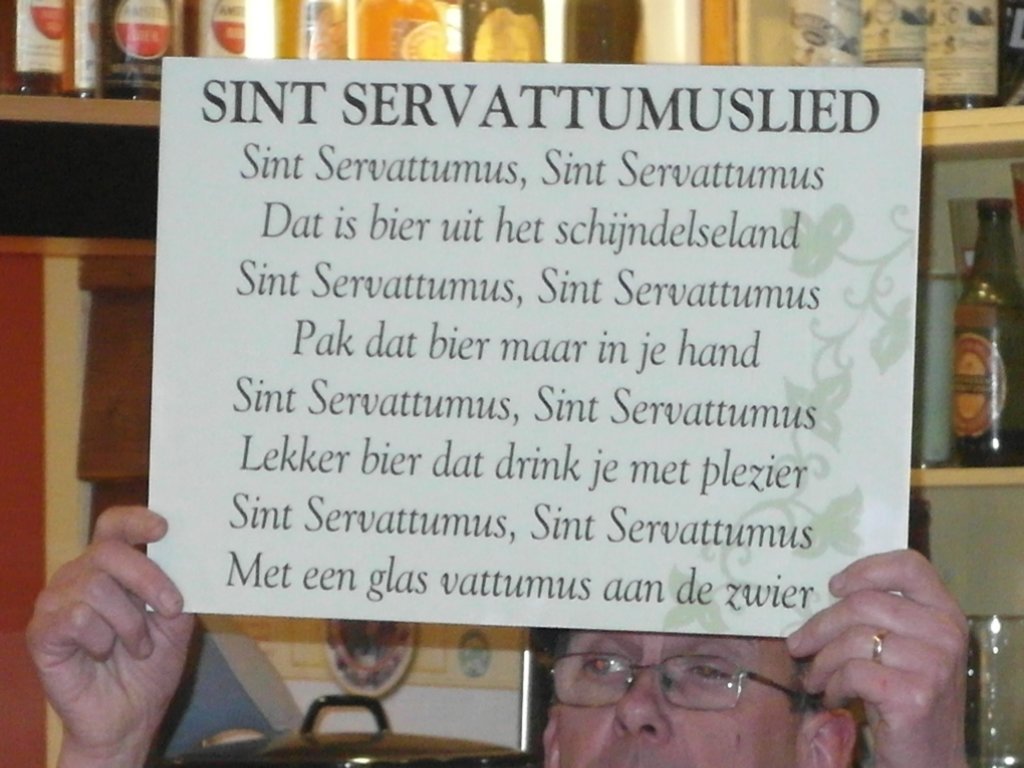 SINT SERVATTUMUSLIED
Sint Servattumus, Sint Servattumus
Dat is bier uit het schijndelseland
Sint Servattumus, Sint Servattumus
Pak dat bier maar in je hand
Sint Servattumus, Sint Servattumus
Lekker bier dat drink je met plezier
Sint Servattumus, Sint Servattumus
Met een glas vattumus aan de zwier